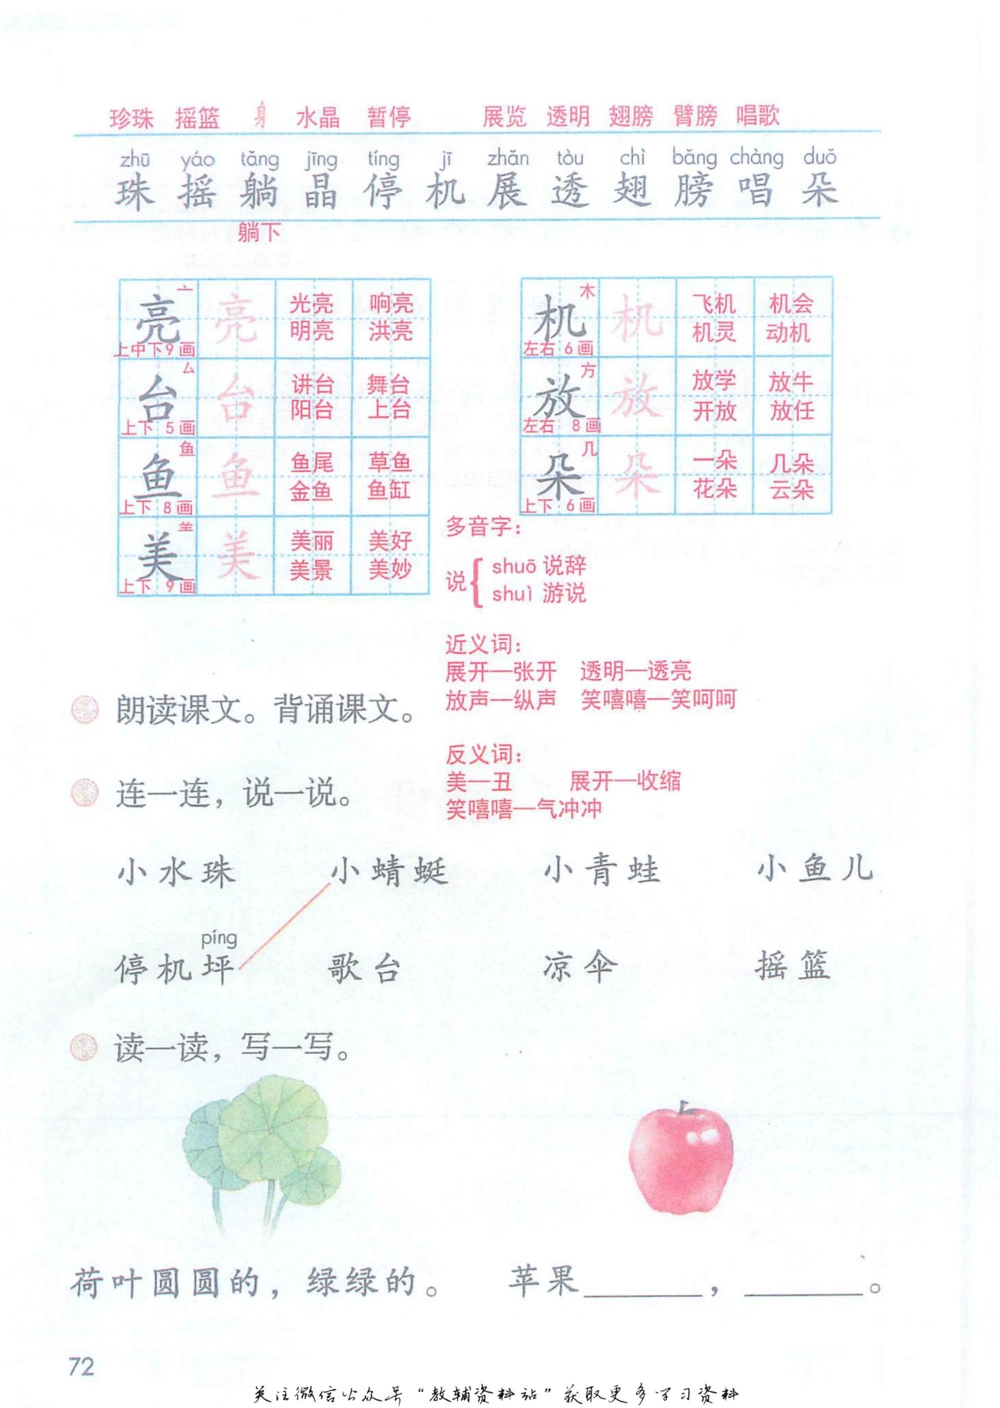 珍珠 摇篮 身 水晶 暂停 展览 透明 翅膀 臂膀 唱歌
zhū yáo tǎng jīng tíng jī zhǎn tòu chì bǎng chàng duǒ
珠 摇 躺 晶 停 机 展 透 翅 膀 唱 朵
躺下
亮 亠 上中下9画 亮 光亮 响亮
明亮 洪亮
台 厶 上下 5画 台 讲台 舞台
阳台 上台
鱼 鱼 上下 8画 鱼 鱼尾 草鱼
金鱼 鱼缸
美 上下 9画 美 美丽 美好
美景 美妙
机 木 左右 6画 机 飞机 机会
机灵 动机
放 方 左右 8画 放 放学 放牛
开放 放任
朵 几 上下 6画 朵 一朵 几朵
花朵 云朵
多音字:
说{ shuō 说辞
shuì 游说
近义词:
展开—张开 透明—透亮
放声—纵声 笑嘻嘻—笑呵呵
朗读课文。背诵课文。
反义词:
美—丑 展开—收缩
笑嘻嘻—气冲冲
连一连,说一说。
小水珠 小蜻蜓 小青蛙 小鱼儿
píng
停机坪 歌台 凉伞 摇篮
读一读,写一写。
荷叶圆圆的,绿绿的。 苹果______,______。
72
关注微信公众号“教辅资料站”获取更多学习资料